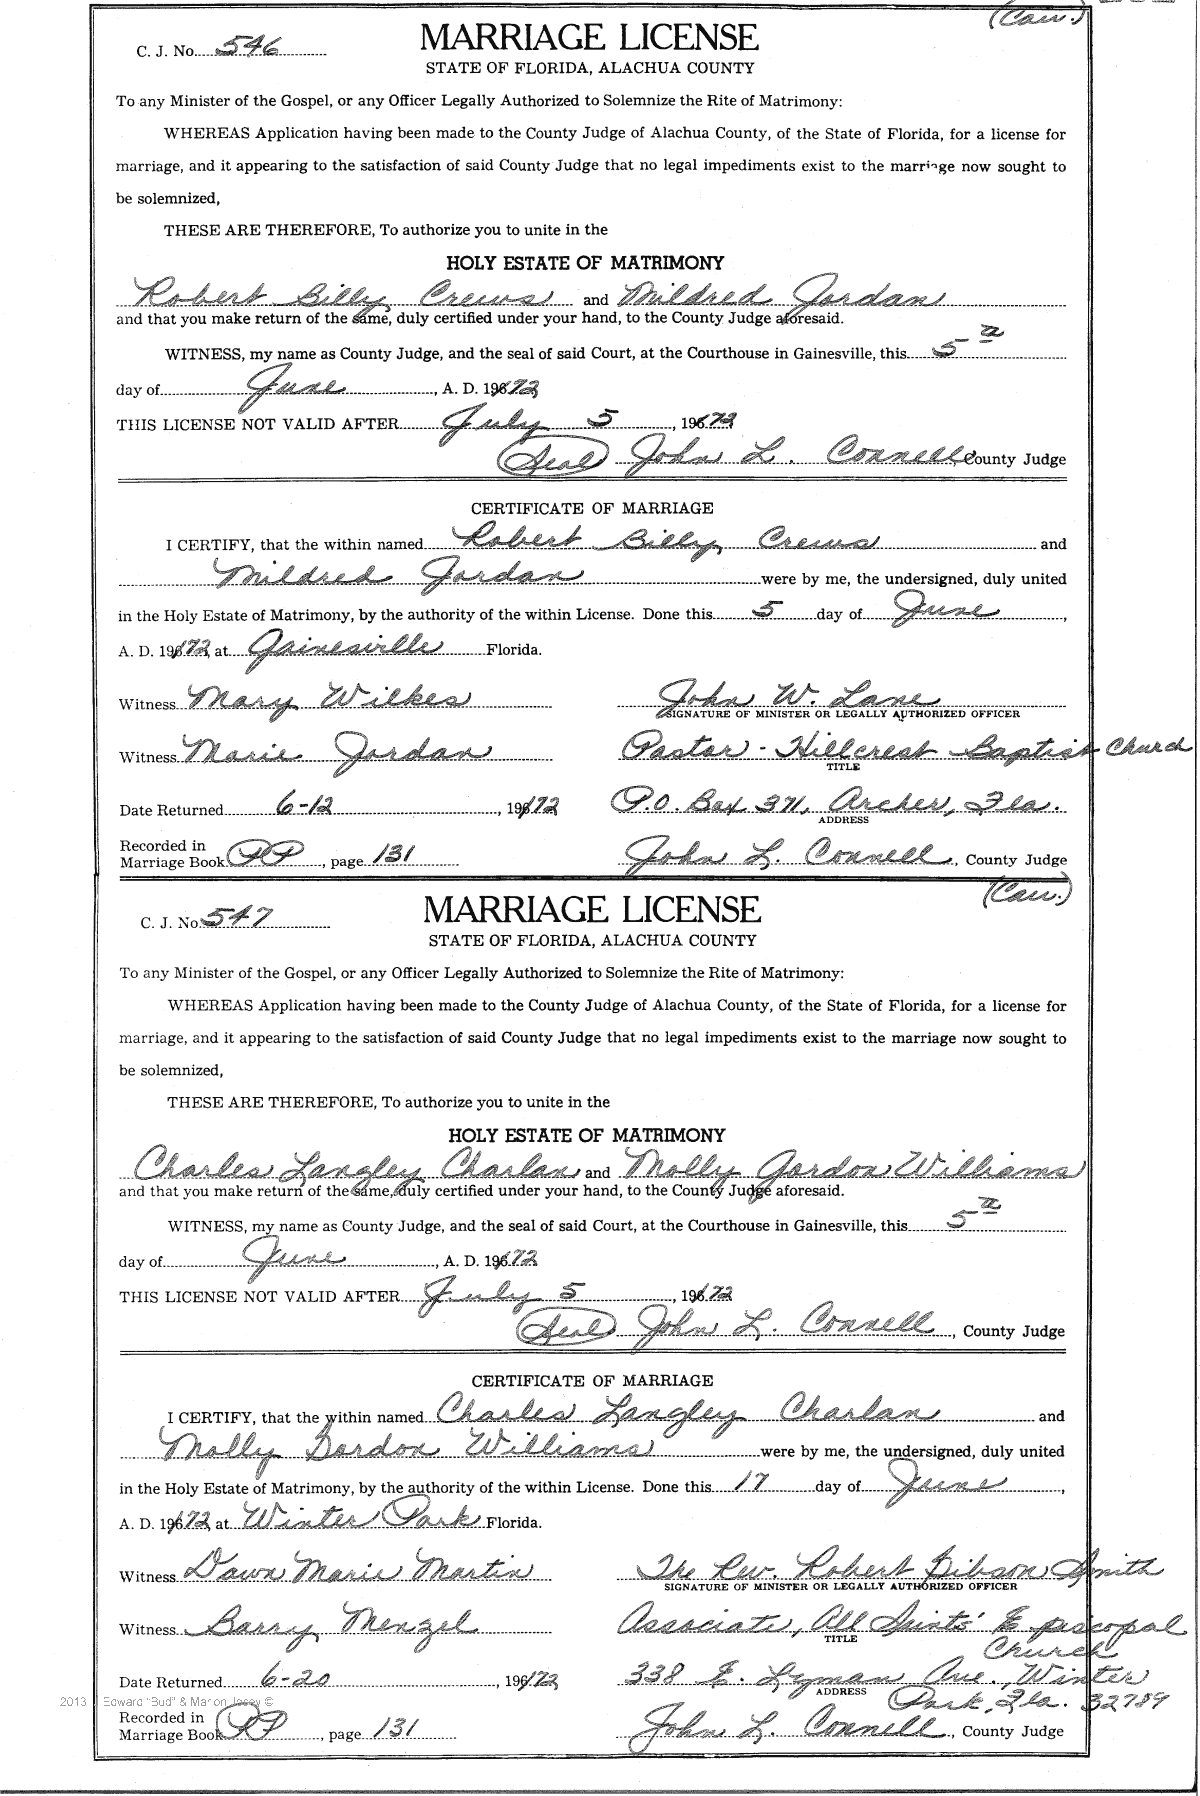 (Cau.)
C. J. No. 546
MARRIAGE LICENSE
STATE OF FLORIDA, ALACHUA COUNTY
To any Minister of the Gospel, or any Officer Legally Authorized to Solemnize the Rite of Matrimony:
WHEREAS Application having been made to the County Judge of Alachua County, of the State of Florida, for a license for
marriage, and it appearing to the satisfaction of said County Judge that no legal impediments exist to the marriage now sought to
be solemnized,
THESE ARE THEREFORE, To authorize you to unite in the
HOLY ESTATE OF MATRIMONY
Robert Billy Crews and Mildred Jordan
and that you make return of the same, duly certified under your hand, to the County Judge aforesaid.
WITNESS, my name as County Judge, and the seal of said Court, at the Courthouse in Gainesville, this 5
day of June, A. D. 1972
THIS LICENSE NOT VALID AFTER July 5, 1972
(Seal) John L. Connell, County Judge
CERTIFICATE OF MARRIAGE
I CERTIFY, that the within named Robert Billy Crews and
Mildred Jordan were by me, the undersigned, duly united
in the Holy Estate of Matrimony, by the authority of the within License. Done this 5 day of June,
A. D. 1972, at Gainesville Florida.
Witness Mary Wilkes John W. Lane
SIGNATURE OF MINISTER OR LEGALLY AUTHORIZED OFFICER
Witness Marie Jordan Pastor - Hillcrest Baptist Church
TITLE
Date Returned 6-12, 1972 P.O. Box 371, Archer, Fla.
ADDRESS
Recorded in
Marriage Book PP, page 131 John L. Connell, County Judge
(Cau.)
C. J. No. 547
MARRIAGE LICENSE
STATE OF FLORIDA, ALACHUA COUNTY
To any Minister of the Gospel, or any Officer Legally Authorized to Solemnize the Rite of Matrimony:
WHEREAS Application having been made to the County Judge of Alachua County, of the State of Florida, for a license for
marriage, and it appearing to the satisfaction of said County Judge that no legal impediments exist to the marriage now sought to
be solemnized,
THESE ARE THEREFORE, To authorize you to unite in the
HOLY ESTATE OF MATRIMONY
Charles Langley Charlan and Molly Gordon Williams
and that you make return of the same, duly certified under your hand, to the County Judge aforesaid.
WITNESS, my name as County Judge, and the seal of said Court, at the Courthouse in Gainesville, this 5
day of June, A. D. 1972
THIS LICENSE NOT VALID AFTER July 5, 1972
(Seal) John L. Connell, County Judge
CERTIFICATE OF MARRIAGE
I CERTIFY, that the within named Charles Langley Charlan and
Molly Gordon Williams were by me, the undersigned, duly united
in the Holy Estate of Matrimony, by the authority of the within License. Done this 17 day of June,
A. D. 1972, at Winter Park Florida.
Witness Dawn Marie Martin The Rev. Robert Gibson Smith
SIGNATURE OF MINISTER OR LEGALLY AUTHORIZED OFFICER
Witness Barry Menzel Associate, All Saints' Episcopal
TITLE Church
Date Returned 6-20, 1972 338 E. Lyman Ave., Winter
ADDRESS Park, Fla. 32789
2013 Edward "Bud" & Marion Josey ©
Recorded in
Marriage Book PP, page 131 John L. Connell, County Judge